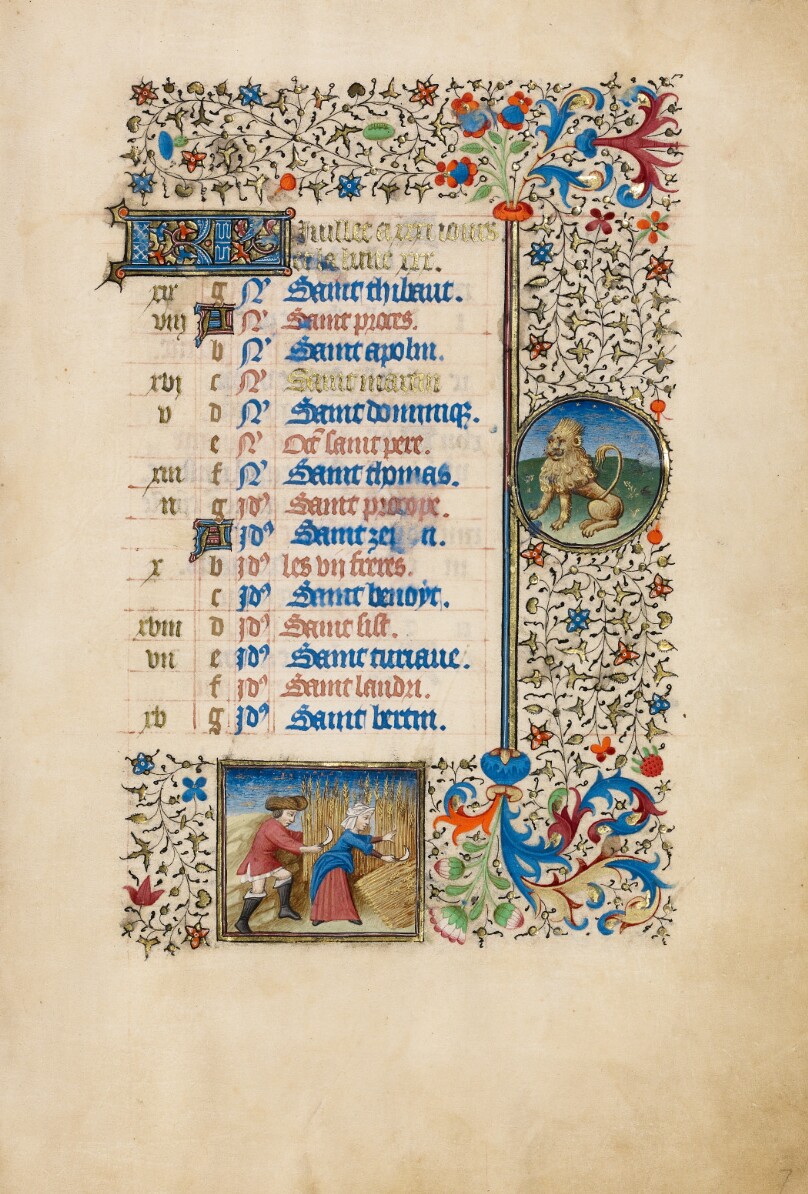 KL Juillet a xxxi iours.
et la lune xxx.
xix g N Saint thibaut.
viij A N Saint proces.
b N Saint apolin.
xvj c N Saint martin
v d N Saint dominiq̃.
e N Oct̃ saint pere.
xiii f N Saint thomas.
ii g jdꝰ Saint procope.
A jdꝰ Saint
x b jdꝰ les vij freres.
c jdꝰ Saint benoyt.
xviii d jdꝰ Saint sist.
vii e jdꝰ Saint turiaue.
f jdꝰ Saint landri.
xv g jdꝰ Saint bertin.
7